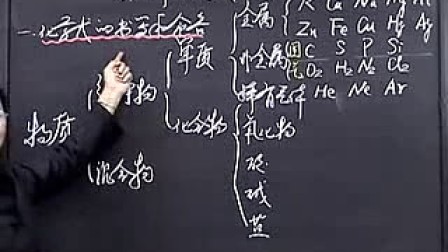 一.化学式的书写和命名
物质
纯净物
混合物
单质
化合物
金属
K Ca Na Mg Al
Zn Fe Cu Hg Ag
非金属
固 C S P Si
气 O₂ H₂ N₂ Cl₂
稀有气体 He Ne Ar
氧化物
酸
碱
盐